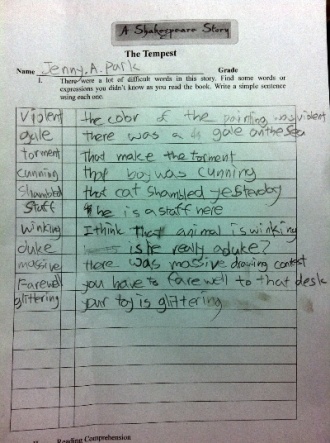 A Shakespeare Story
The Tempest
Name Jenny. A. Park Grade
I. There were a lot of difficult words in this story. Find some words or
expressions you didn't know as you read the book. Write a simple sentence
using each one.
Violent the color of the painting was violent
gale there was a gale on the sea
torment That make the torment
cunning that boy was cunning
Shambled that cat shambled yesterday
Staff he is a staff here
Winking I think that animal is winking
duke is he really a duke?
massive there was massive drawing contest
Farewell you have to farewell to that desk
glittering your toy is glittering
Reading Comprehension